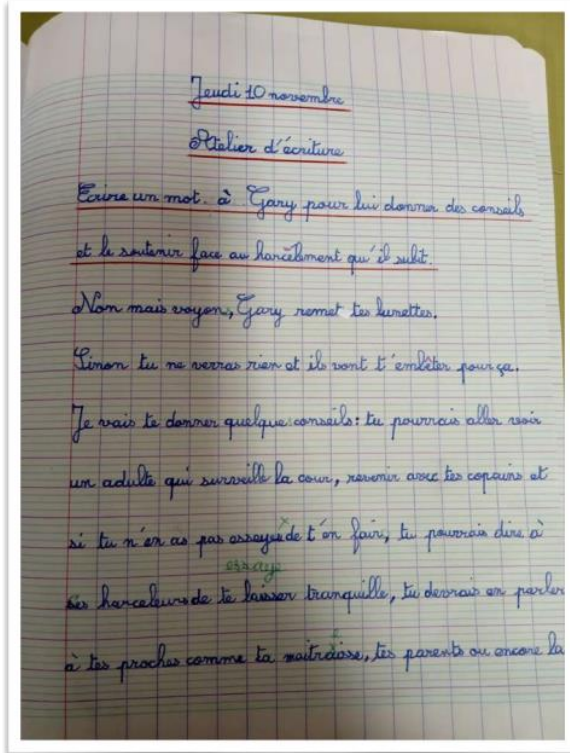 Jeudi 10 novembre
Atelier d'écriture
Ecrire un mot à Gary pour lui donner des conseils
et le soutenir face au harcèlement qu'il subit.
Non mais voyon, Gary remet tes lunettes.
Sinon tu ne verras rien et ils vont t'embêter pour ça.
Je vais te donner quelque conseils: tu pourrais aller voir
un adulte qui surveille la cour, revenir avec tes copains et
si tu n'en as pas essayes de t'en fair, tu pourrais dire à
essaye
ses harceleurs de te laisser tranquille, tu devrais en parler
à tes proches comme ta maitraisse, tes parents ou encore la